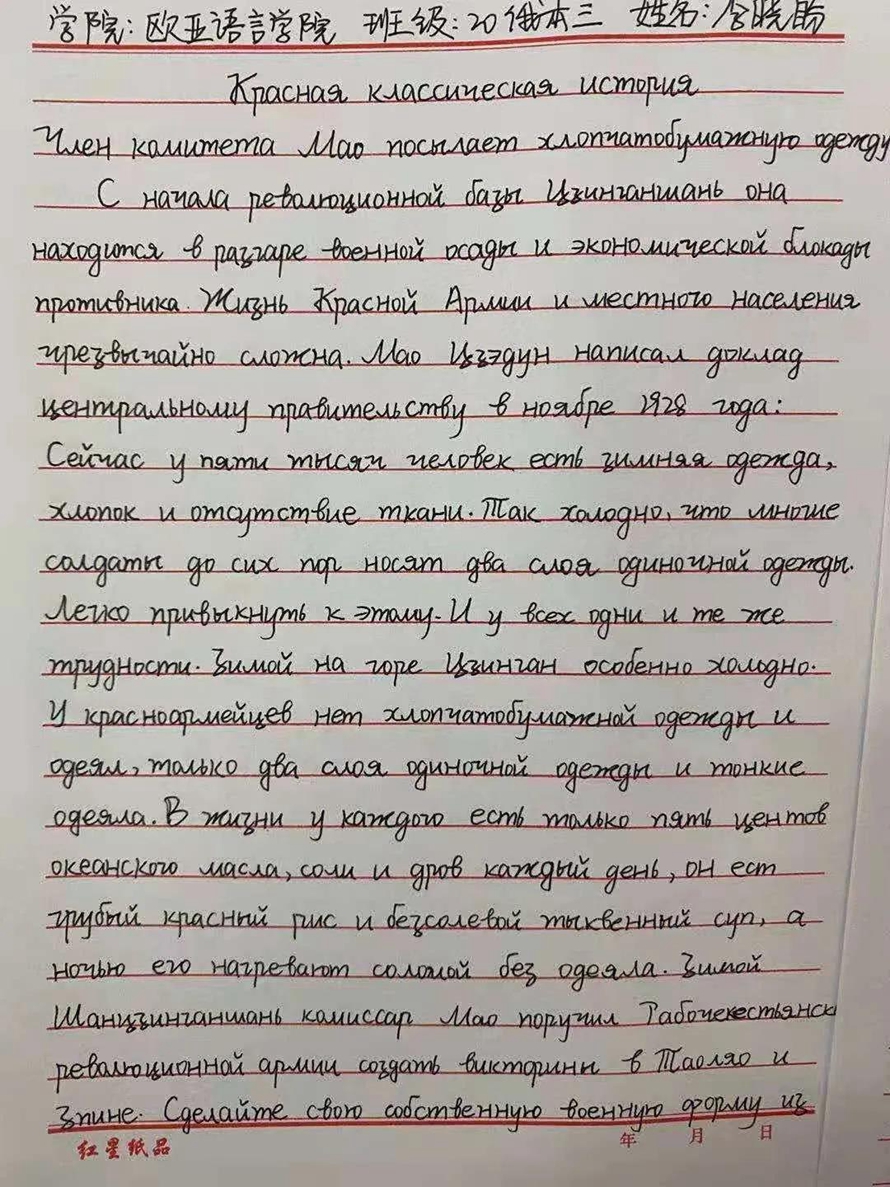 学院: 欧亚语言学院 班级: 20俄本三 姓名:
Красная классическая история
Член комитета Мао посылает хлопчатобумажную одежду
С начала революционной базы Цзинганшань она
находится в разгаре военной осады и экономической блокады
противника. Жизнь Красной Армии и местного населения
чрезвычайно сложна. Мао Цзэдун написал доклад
центральному правительству в ноябре 1928 года:
Сейчас у пяти тысяч человек есть зимняя одежда,
хлопок и отсутствие ткани. Так холодно, что многие
солдаты до сих пор носят два слоя одиночной одежды.
Легко привыкнуть к этому. И у всех одни и те же
трудности. Зимой на горе Цзинган особенно холодно.
У красноармейцев нет хлопчатобумажной одежды и
одеял, только два слоя одиночной одежды и тонкие
одеяла. В жизни у каждого есть только пять центов
океанского масла, соли и дров каждый день, он ест
грубый красный рис и безсолевой тыквенный суп, а
ночью его нагревают соломой без одеяла. Зимой
Шанцзинганшань комиссар Мао поручил Рабочекестьянск
революционной армии создать викторины в Таоляо и
Зпине. Сделайте свою собственную военную форму из
红星纸品 年 月 日